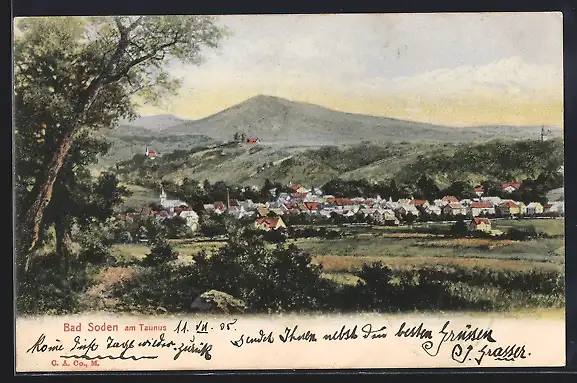 Bad Soden am Taunus 11. VII. 05. sendet Ihnen nebst den besten Grüssen
Tage wieder zurück
C. A. Co., M.